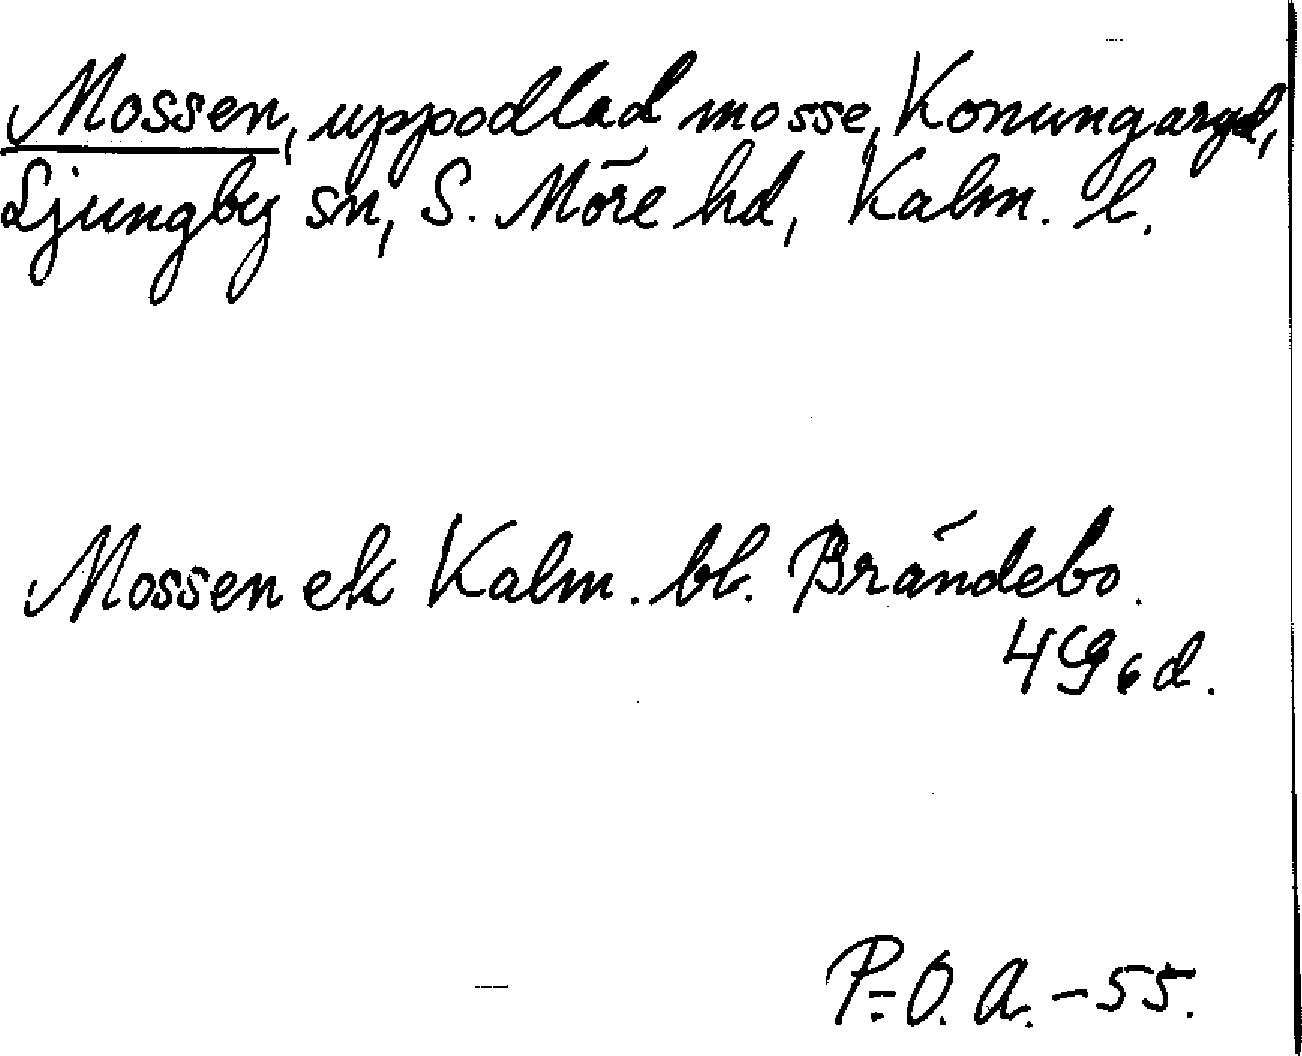 Mossen, uppodlad mosse, Konungaryd,
Ljungby sn, S. Möre hd, Kalm. l.
Mossen ek Kalm. bl. Brändebo.
4G6d.
P.-O. A. - 55.